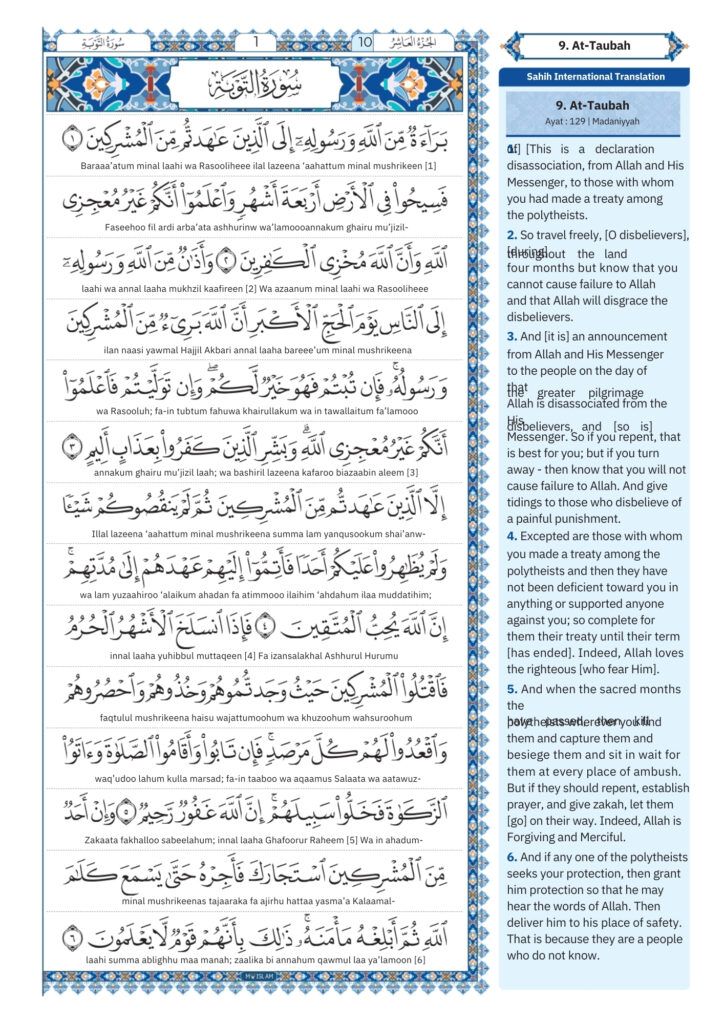 سُورَةُ التَّوْبَةِ
1
10
الجُزْءُ العَاشِرُ
سُورَةُ التَّوْبَةِ
بَرَآءَةٌ مِّنَ ٱللَّهِ وَرَسُولِهِۦٓ إِلَى ٱلَّذِينَ عَٰهَدتُّم مِّنَ ٱلْمُشْرِكِينَ ١
Baraaa’atum minal laahi wa Rasooliheee ilal lazeena ‘aahattum minal mushrikeen [1]
فَسِيحُوا۟ فِى ٱلْأَرْضِ أَرْبَعَةَ أَشْهُرٍ وَٱعْلَمُوٓا۟ أَنَّكُمْ غَيْرُ مُعْجِزِى
Faseehoo fil ardi arba’ata ashhurinw wa’lamoooannakum ghairu mu’jizil-
ٱللَّهِ وَأَنَّ ٱللَّهَ مُخْزِى ٱلْكَٰفِرِينَ ٢ وَأَذَٰنٌ مِّنَ ٱللَّهِ وَرَسُولِهِۦٓ
laahi wa annal laaha mukhzil kaafireen [2] Wa azaanum minal laahi wa Rasooliheee
إِلَى ٱلنَّاسِ يَوْمَ ٱلْحَجِّ ٱلْأَكْبَرِ أَنَّ ٱللَّهَ بَرِىٓءٌ مِّنَ ٱلْمُشْرِكِينَ
ilan naasi yawmal Hajjil Akbari annal laaha bareee’um minal mushrikeena
وَرَسُولُهُۥ ۚ فَإِن تُبْتُمْ فَهُوَ خَيْرٌ لَّكُمْ ۖ وَإِن تَوَلَّيْتُمْ فَٱعْلَمُوٓا۟
wa Rasooluh; fa-in tubtum fahuwa khairullakum wa in tawallaitum fa’lamooo
أَنَّكُمْ غَيْرُ مُعْجِزِى ٱللَّهِ ۗ وَبَشِّرِ ٱلَّذِينَ كَفَرُوا۟ بِعَذَابٍ أَلِيمٍ ٣
annakum ghairu mu’jizil laah; wa bashiril lazeena kafaroo biazaabin aleem [3]
إِلَّا ٱلَّذِينَ عَٰهَدتُّم مِّنَ ٱلْمُشْرِكِينَ ثُمَّ لَمْ يَنقُصُوكُمْ شَيْـًٔا
Illal lazeena ‘aahattum minal mushrikeena summa lam yanqusookum shai’anw-
وَلَمْ يُظَٰهِرُوا۟ عَلَيْكُمْ أَحَدًا فَأَتِمُّوٓا۟ إِلَيْهِمْ عَهْدَهُمْ إِلَىٰ مُدَّتِهِمْ ۚ
wa lam yuzaahiroo ‘alaikum ahadan fa atimmooo ilaihim ‘ahdahum ilaa muddatihim;
إِنَّ ٱللَّهَ يُحِبُّ ٱلْمُتَّقِينَ ٤ فَإِذَا ٱنسَلَخَ ٱلْأَشْهُرُ ٱلْحُرُمُ
innal laaha yuhibbul muttaqeen [4] Fa izansalakhal Ashhurul Hurumu
فَٱقْتُلُوا۟ ٱلْمُشْرِكِينَ حَيْثُ وَجَدتُّمُوهُمْ وَخُذُوهُمْ وَٱحْصُرُوهُمْ
faqtulul mushrikeena haisu wajattumoohum wa khuzoohum wahsuroohum
وَٱقْعُدُوا۟ لَهُمْ كُلَّ مَرْصَدٍ ۚ فَإِن تَابُوا۟ وَأَقَامُوا۟ ٱلصَّلَوٰةَ وَءَاتَوُا۟
waq’udoo lahum kulla marsad; fa-in taaboo wa aqaamus Salaata wa aatawuz-
ٱلزَّكَوٰةَ فَخَلُّوا۟ سَبِيلَهُمْ ۚ إِنَّ ٱللَّهَ غَفُورٌ رَّحِيمٌ ٥ وَإِنْ أَحَدٌ
Zakaata fakhalloo sabeelahum; innal laaha Ghafoorur Raheem [5] Wa in ahadum-
مِّنَ ٱلْمُشْرِكِينَ ٱسْتَجَارَكَ فَأَجِرْهُ حَتَّىٰ يَسْمَعَ كَلَٰمَ
minal mushrikeenas tajaaraka fa ajirhu hattaa yasma’a Kalaamal-
ٱللَّهِ ثُمَّ أَبْلِغْهُ مَأْمَنَهُۥ ۚ ذَٰلِكَ بِأَنَّهُمْ قَوْمٌ لَّا يَعْلَمُونَ ٦
laahi summa ablighhu maa manah; zaalika bi annahum qawmul laa ya’lamoon [6]
M W ISLAM
9. At-Taubah
Sahih International Translation
9. At-Taubah
Ayat : 129 | Madaniyyah
1. [This is a declaration of]
disassociation, from Allah and His
Messenger, to those with whom
you had made a treaty among
the polytheists.
2. So travel freely, [O disbelievers],
[during]
throughout the land
four months but know that you
cannot cause failure to Allah
and that Allah will disgrace the
disbelievers.
3. And [it is] an announcement
from Allah and His Messenger
to the people on the day of
that
the greater pilgrimage
Allah is disassociated from the
His
disbelievers, and [so is]
Messenger. So if you repent, that
is best for you; but if you turn
away - then know that you will not
cause failure to Allah. And give
tidings to those who disbelieve of
a painful punishment.
4. Excepted are those with whom
you made a treaty among the
polytheists and then they have
not been deficient toward you in
anything or supported anyone
against you; so complete for
them their treaty until their term
[has ended]. Indeed, Allah loves
the righteous [who fear Him].
5. And when the sacred months
the
have passed, then kill
polytheists wherever you find
them and capture them and
besiege them and sit in wait for
them at every place of ambush.
But if they should repent, establish
prayer, and give zakah, let them
[go] on their way. Indeed, Allah is
Forgiving and Merciful.
6. And if any one of the polytheists
seeks your protection, then grant
him protection so that he may
hear the words of Allah. Then
deliver him to his place of safety.
That is because they are a people
who do not know.